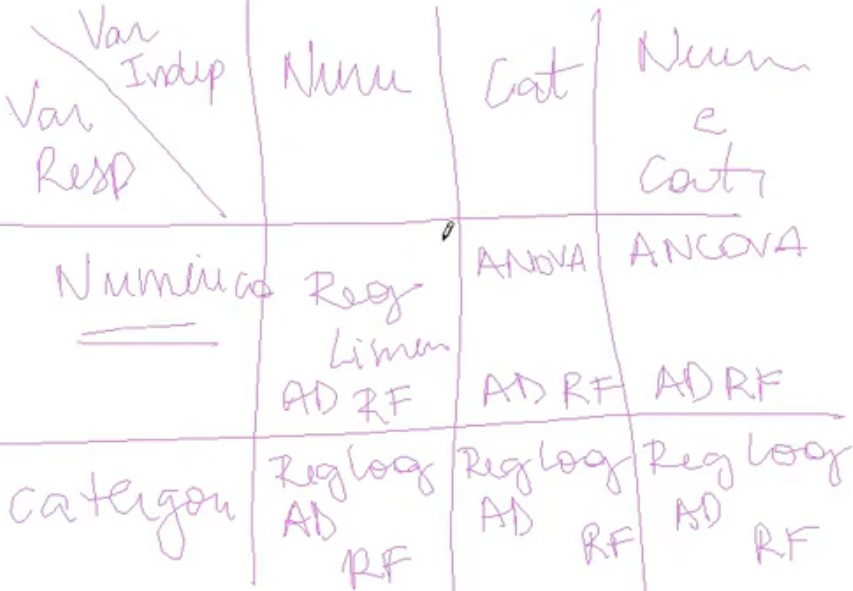 Var
Indep
Var
Resp
Num
Cat
Num
e
Cat
Numérica
Reg
Linear
AD RF
ANOVA
AD RF
ANCOVA
AD RF
catergori
Reg Log
AD
RF
Reg Log
AD
RF
Reg Log
AD
RF